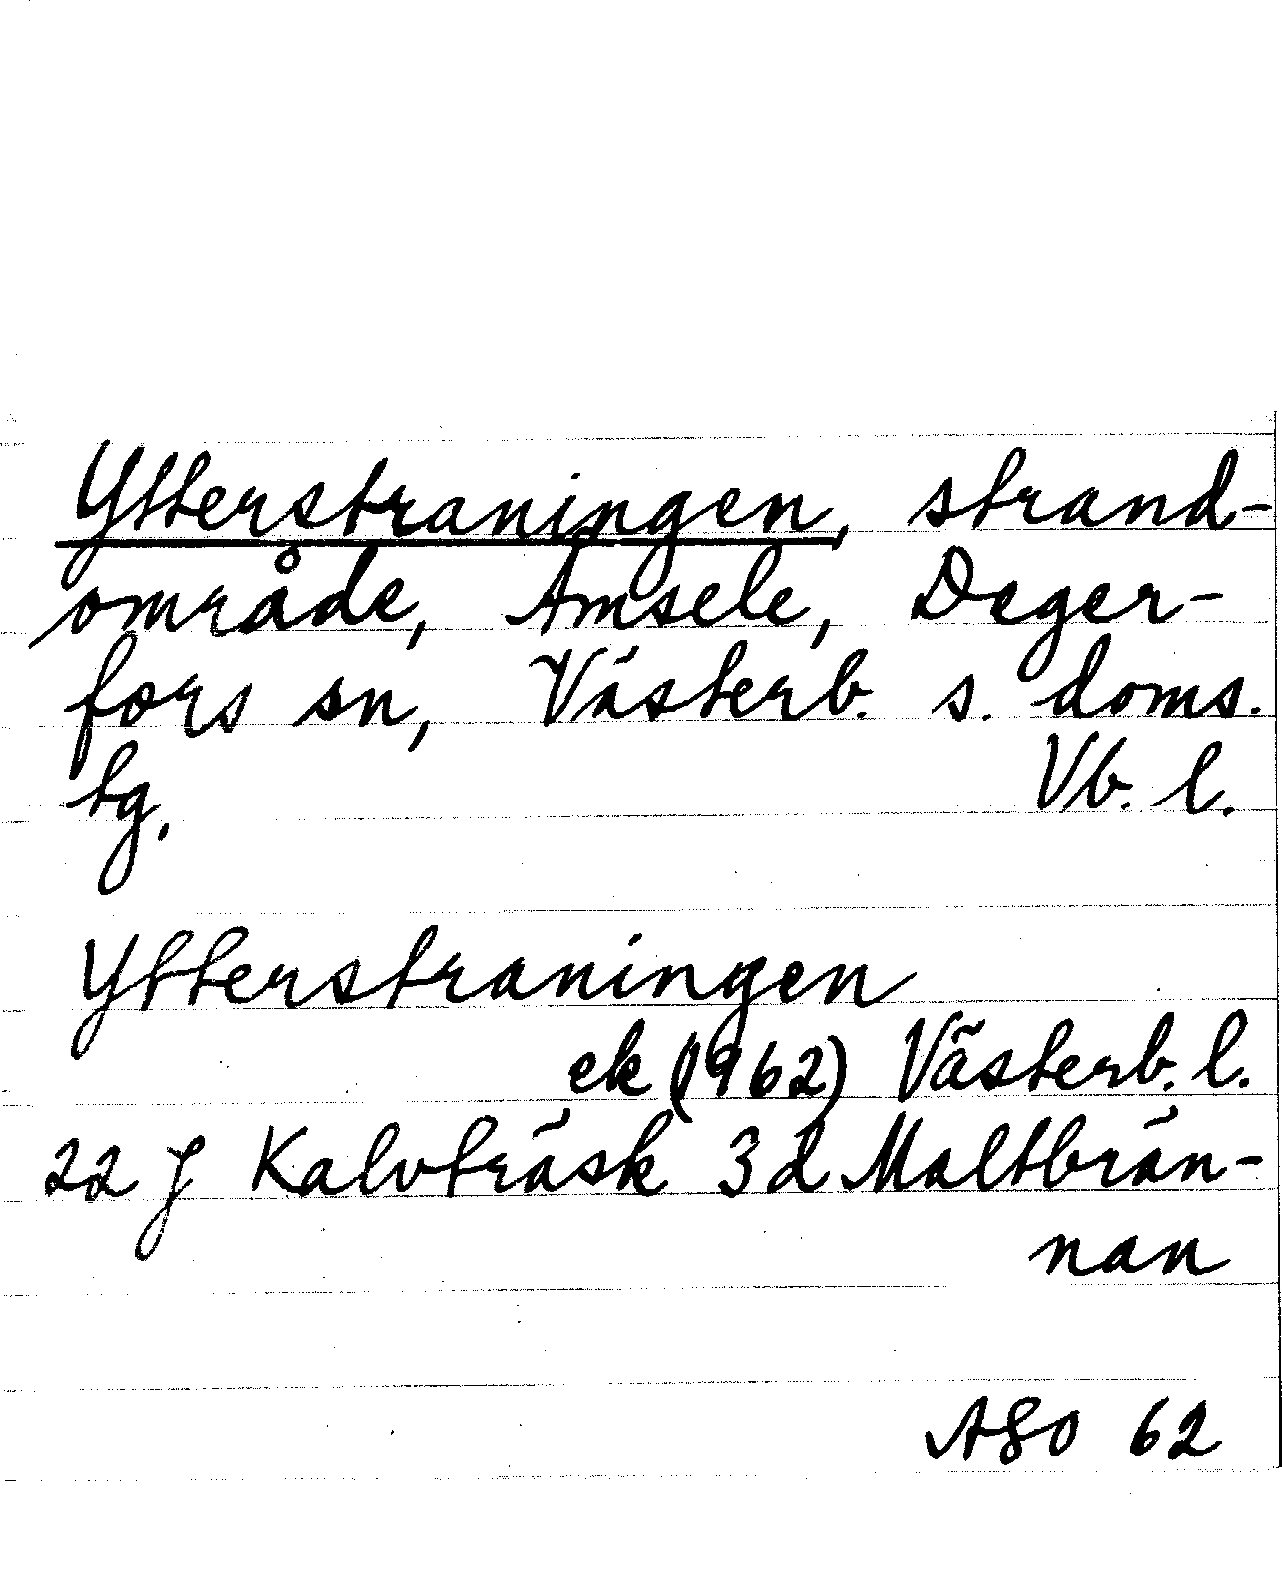 Ytterstraningen, strand-
område, Åmsele, Deger-
fors sn, Västerb. s. doms.
tg. Vb. l.
Ytterstraningen
ek (1962) Västerb. l.
22 J Kalvträsk 3d Maltbrän-
nan
ASO 62